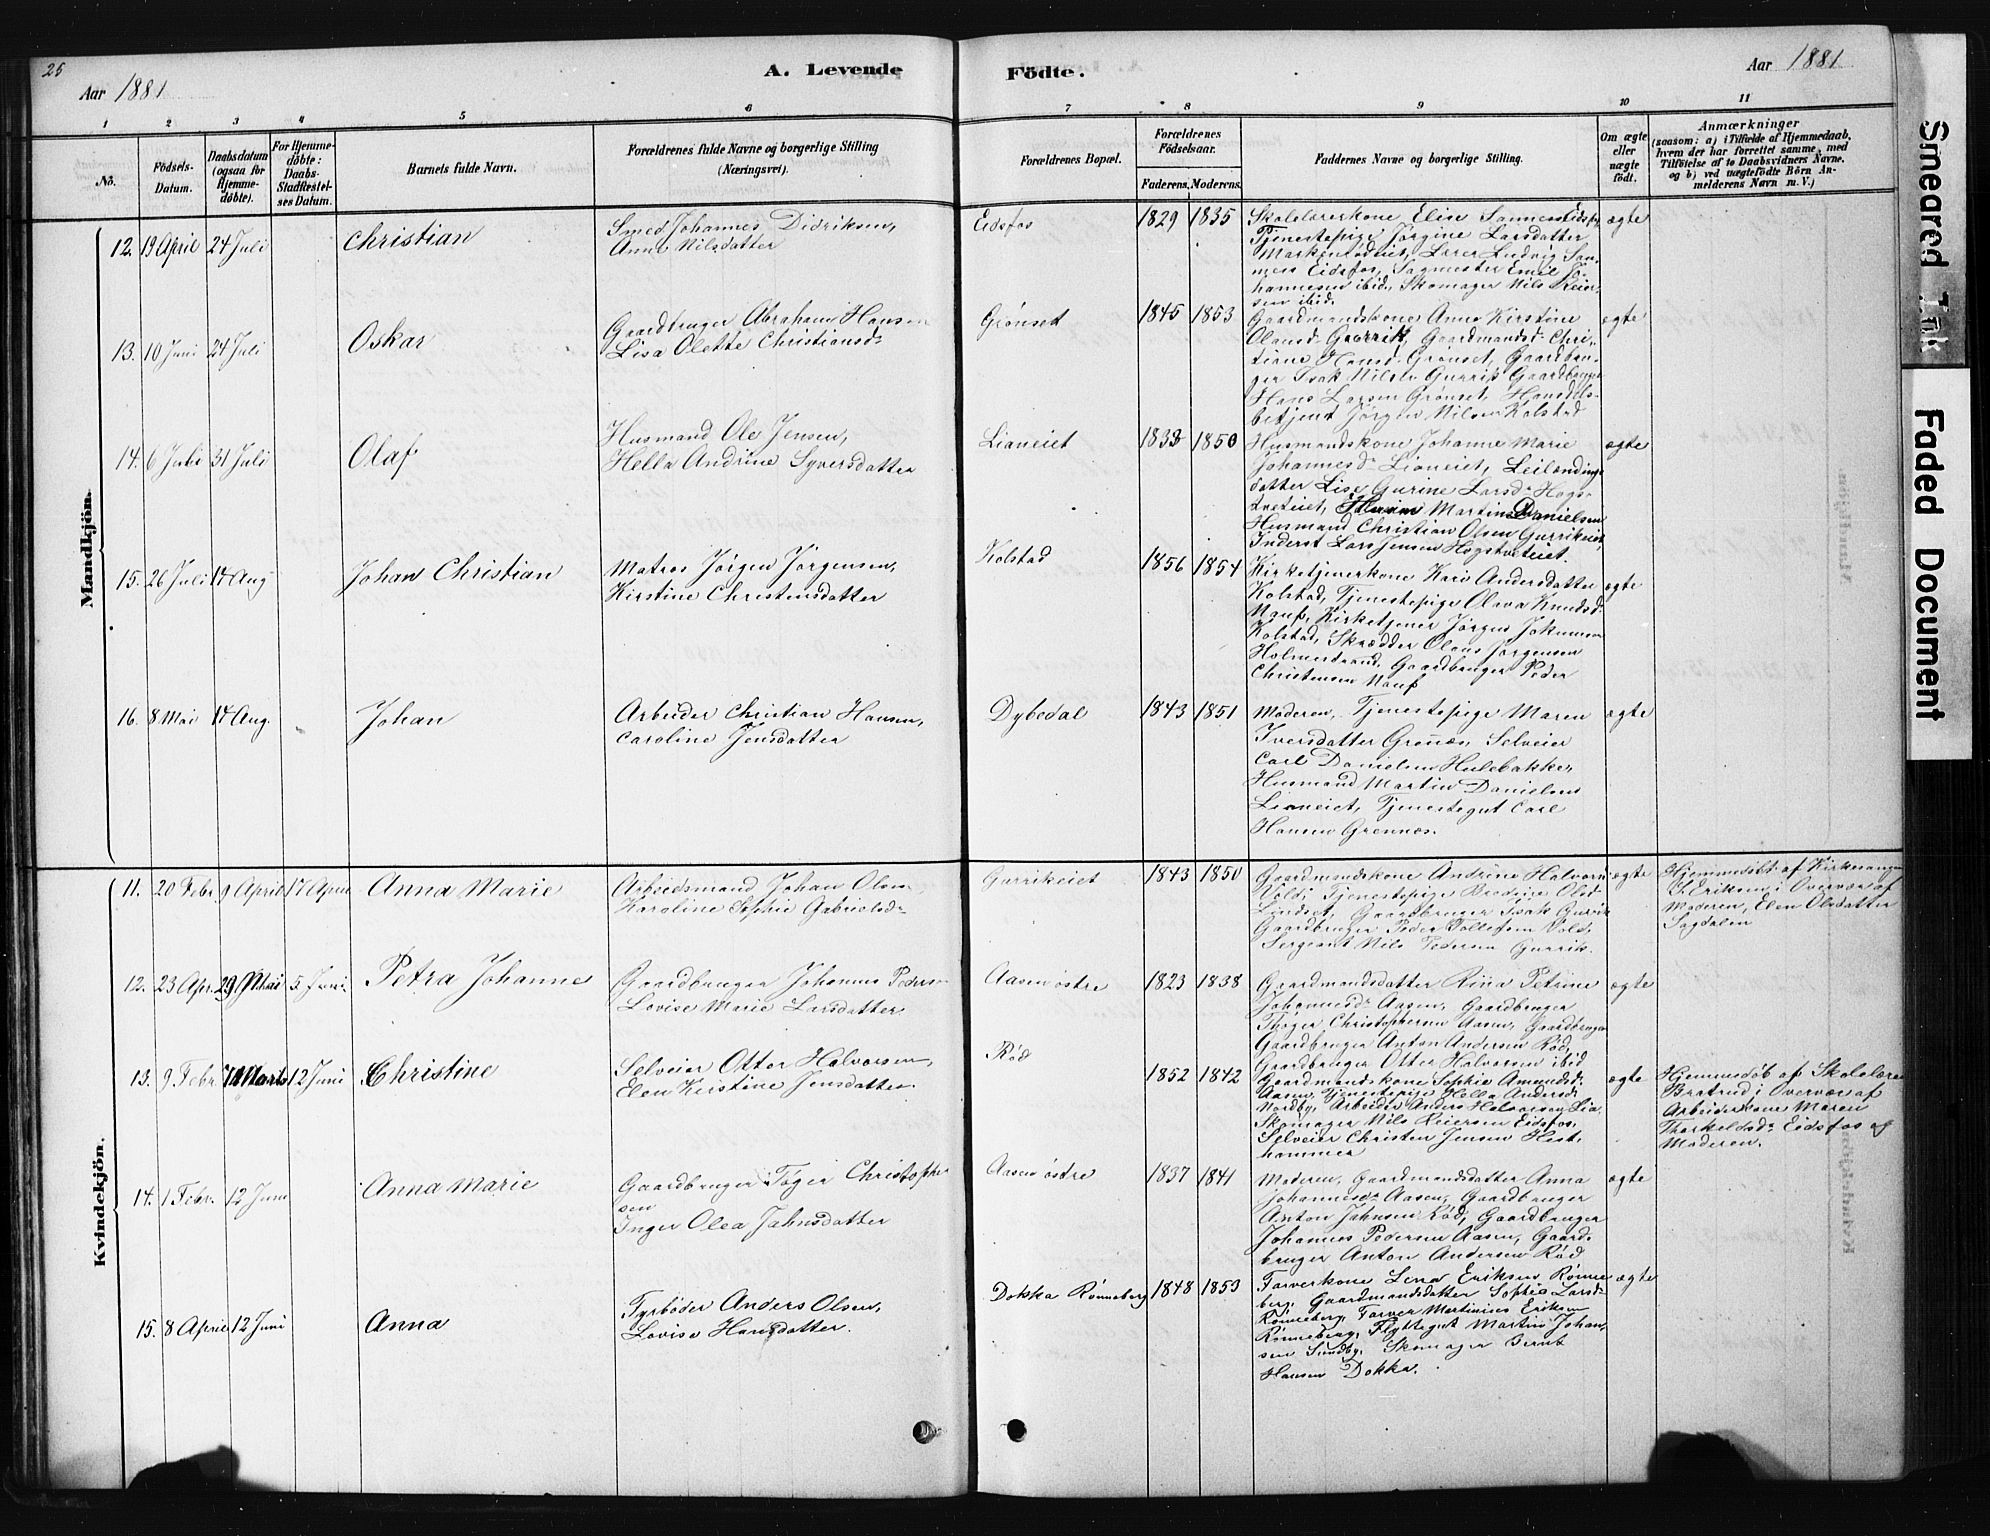 25
Aar 1881
A. Levende
Födte.
Aar 1881
1 2 3 4 5 6 7 8 9 10 11
No.
Födsels-
Datum.
Daabsdatum
(ogsaa for
Hjemme-
døbte).
For Hjemme-
døbte:
Daabs-
Stadfæstel-
ses Datum.
Barnets fulde Navn.
Forældrenes fulde Navne og borgerlige Stilling
(Næringsvei).
Forældrenes Bopæl.
Forældrenes
Födselsaar.
Faderens. Moderens.
Faddernes Navne og borgerlige Stilling.
Om ægte
eller
uægte
födt.
Anmærkninger
(saasom: a) i Tilfælde af Hjemmedaab,
hvem der har forrettet samme, med
Tilføielse af to Daabsvidners Navne.
og b) ved uægtefødte Börn An-
melderens Navn m. V.)
Mandkjön.
12. 19 April 24 Juli
Christian
Smed Johannes Didriksen,
Anne Nilsdatter
Eidsfos
1829 1835
Skolelærerkone Elise Sannes Eidsfos,
Tjenestepige Jørgine Larsdatter
Lærer Ludvig San-
nes Eidsfos, Sagmester Emil Jo-
hannesen ibid, Skomager Nils Reier-
sen ibid.
ægte
13. 10 Juni 24 Juli
Oskar
Gaardbruger Abraham Hansen
Lisa Olette Christiansd.
Grønset
1845 1853
Gaardmandskone Anne Kirstine
Olausd. Gurrik, Gaardmandsd. Chri-
tiane Hansd. Grønset, Gaardbru-
ger Isak Nilsen Gurrik Gaardbruger
Hans Larsen Grønset, Handels-
betjent Jørgen Nilsen Kolstad
ægte
14. 6 Juli 31 Juli
Olaf
Husmand Ole Jensen,
Hella Andrine Syversdatter
Lianeiet
1833 1850
Husmandskone Johanne Marie
Johannesd. Lianeiet, Leilændings-
datter Lise Gurine Larsd. Høgs-
tveteiet, Martin Danielsen
Husmand Christian Olsen Gurrikeiet,
Inderst Lars Jensen Høgstveteiet.
ægte
15. 26 Juli 14 Aug
Johan Christian
Matros Jørgen Jørgensen,
Kirstine Christensdatter
Kolstad
1856 1854
Kirketjenerkone Kari Andersdatter
Kolstad, Tjenestepige Olava Knudsd.
Nauf, Kirketjener Jørgen Jokumsen
Kolstad, Skrædder Olaus Jørgensen
Holmestrand, Gaardbruger Peder
Christensen Nauf
ægte
16. 8 Mai 14 Aug.
Johan
Arbeider Christian Hansen,
Caroline Jensdatter
Dybedal
1843 1851
Moderen, Tjenestepige Maren
Iversdatter Grenæs, Selveier
Carl Danielsen Hulebakke,
Husmand Martin Danielsen
Lianeiet, Tjenestegut Carl
Hansen Grennæs.
ægte
Kvindekjön.
11. 20 Febr 9 April 17 April
Anna Marie
Arbeidsmand Johan Olsen
Karoline Sophie Gabrielsd.
Gurrikeiet
1843 1850
Gaardmandskone Andrine Halvorsd
Vold, Tjenestepige Olsd.
Lindset, Gaardbruger Isak Gurrik
Gaardbruger Peder Tollefsen Vold,
Sergeant Nils Pedersen Gurrik.
ægte
Hjemmedöbt af Kirkesanger
J. Eriksen i Overvær af
Moderen, Elen Olsdatter
Sagdalen
12. 23 Apr. 29 Mai 5 Juni.
Petra Johanne
Gaardbruger Johannes Pedersen
Lovise Marie Larsdatter
Aasen østre
1823 1838
Gaardmandsdatter Rina Petrine
Johannesd. Aasen, Gaardbruger
Thøger Christophersen Aasen, Gaardbruger
Gaardbruger Anton Andersen Rød,
Gaardbruger Otter Halvorsen ibid
ægte
13. 9 Febr 14 Marts 12 Juni
Christine
Selveier Otter Halvorsen,
Elen Kirstine Jensdatter
Rød
1852 1842
Gaardmandskone Sophie Amundsd.
Aasen, Tjenestepige Hella Andersd.
Nordby, Arbeider Anders Halvorsen Lia
Skomager Nils Reiersen Eidsfos,
Selveier Christen Jensen Hest-
hammer
ægte
Hjemmedøb af Skolelærer
Bratrud i Overvær af
Arbeiderkone Maren
Thorkeldsd. Eidsfos og
Moderen.
14. 1 Febr. 12 Juni
Anna Marie
Gaardbruger Tøger Christophe
sen
Inger Olea Jahnsdatter
Aasen østre
1837 1841
Moderen, Gaardmandsdatter Anna
Johannesd. Aasen, Gaardbruger
Anton Jahnsen Rød, Gaardbruger
Johannes Pedersen Aasen, Gaard-
bruger Anton Andersen Rød
ægte
15. 8 April 12 Juni
Anna
Fyrbøder Anders Olsen,
Lovise Hansdatter.
Dokka Rønneberg
1848 1853
Farverkone Lena Eriksen Rønne
berg, Gaardmandsdatter Sophie Larsd.
Rønneberg, Farver Martinius Eriksen
Rønneberg, Flyttegut Martin Johan-
sen Sundby, Skomager Bernt
Hansen Dokka.
ægte
Smeared Ink
Faded Document